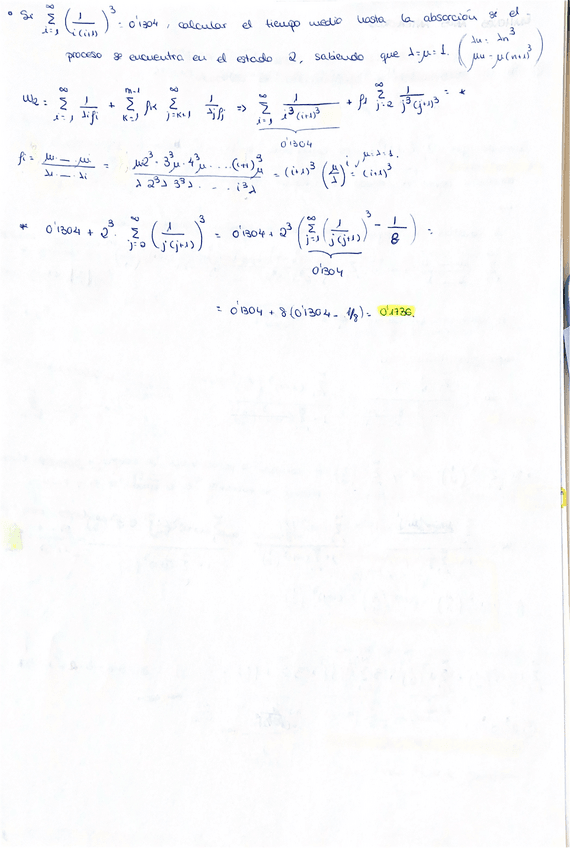 • Si ∞ Σ i=1 (1/i(i+1))^3 = 0'1304, calcular el tiempo medio hasta la absorción si el
proceso se encuentra en el estado 2, sabiendo que λ=μ=1. (λn = λn^3
μn = μ(n+1)^3)
W2 = ∞ Σ i=1 1/λiρi + m-1 Σ k=1 ρk ∞ Σ j=k+1 1/λjρj ⇒ ∞ Σ i=1 1/i^3(i+1)^3 + ρ1 ∞ Σ j=2 1/j^3(j+1)^3 = *
0'1304
ρi = μ1 — μi/λ1 — λi = μ2^3·3^3μ·4^3μ....(i+1)^3μ/λ2^3λ3^3λ.....i^3λ = (i+1)^3 (μ/λ)^i = (i+1)^3
μ=λ=1.
* 0'1304 + 2^3 · ∞ Σ j=2 (1/j(j+1))^3 = 0'1304 + 2^3 (∞ Σ j=1 (1/j(j+1))^3 - 1/8) =
0'1304
= 0'1304 + 8(0'1304 - 1/8) = 0'1736.